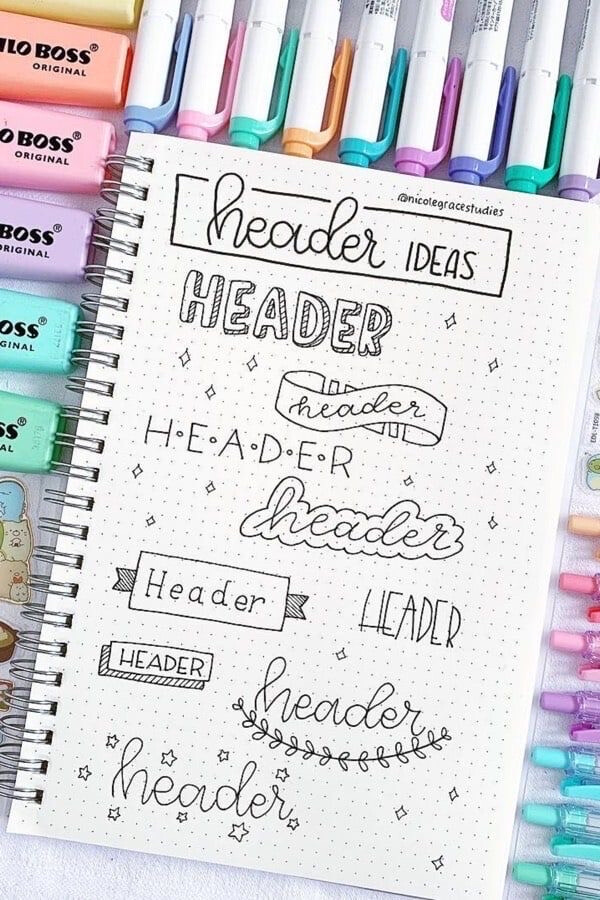 @nicolegracestudies
header IDEAS
HEADER
header
H•E•A•D•E•R
header
Header
HEADER
HEADER
header
header
BOSS®
ORIGINAL
BOSS®
ORIGINAL
BOSS®
ORIGINAL